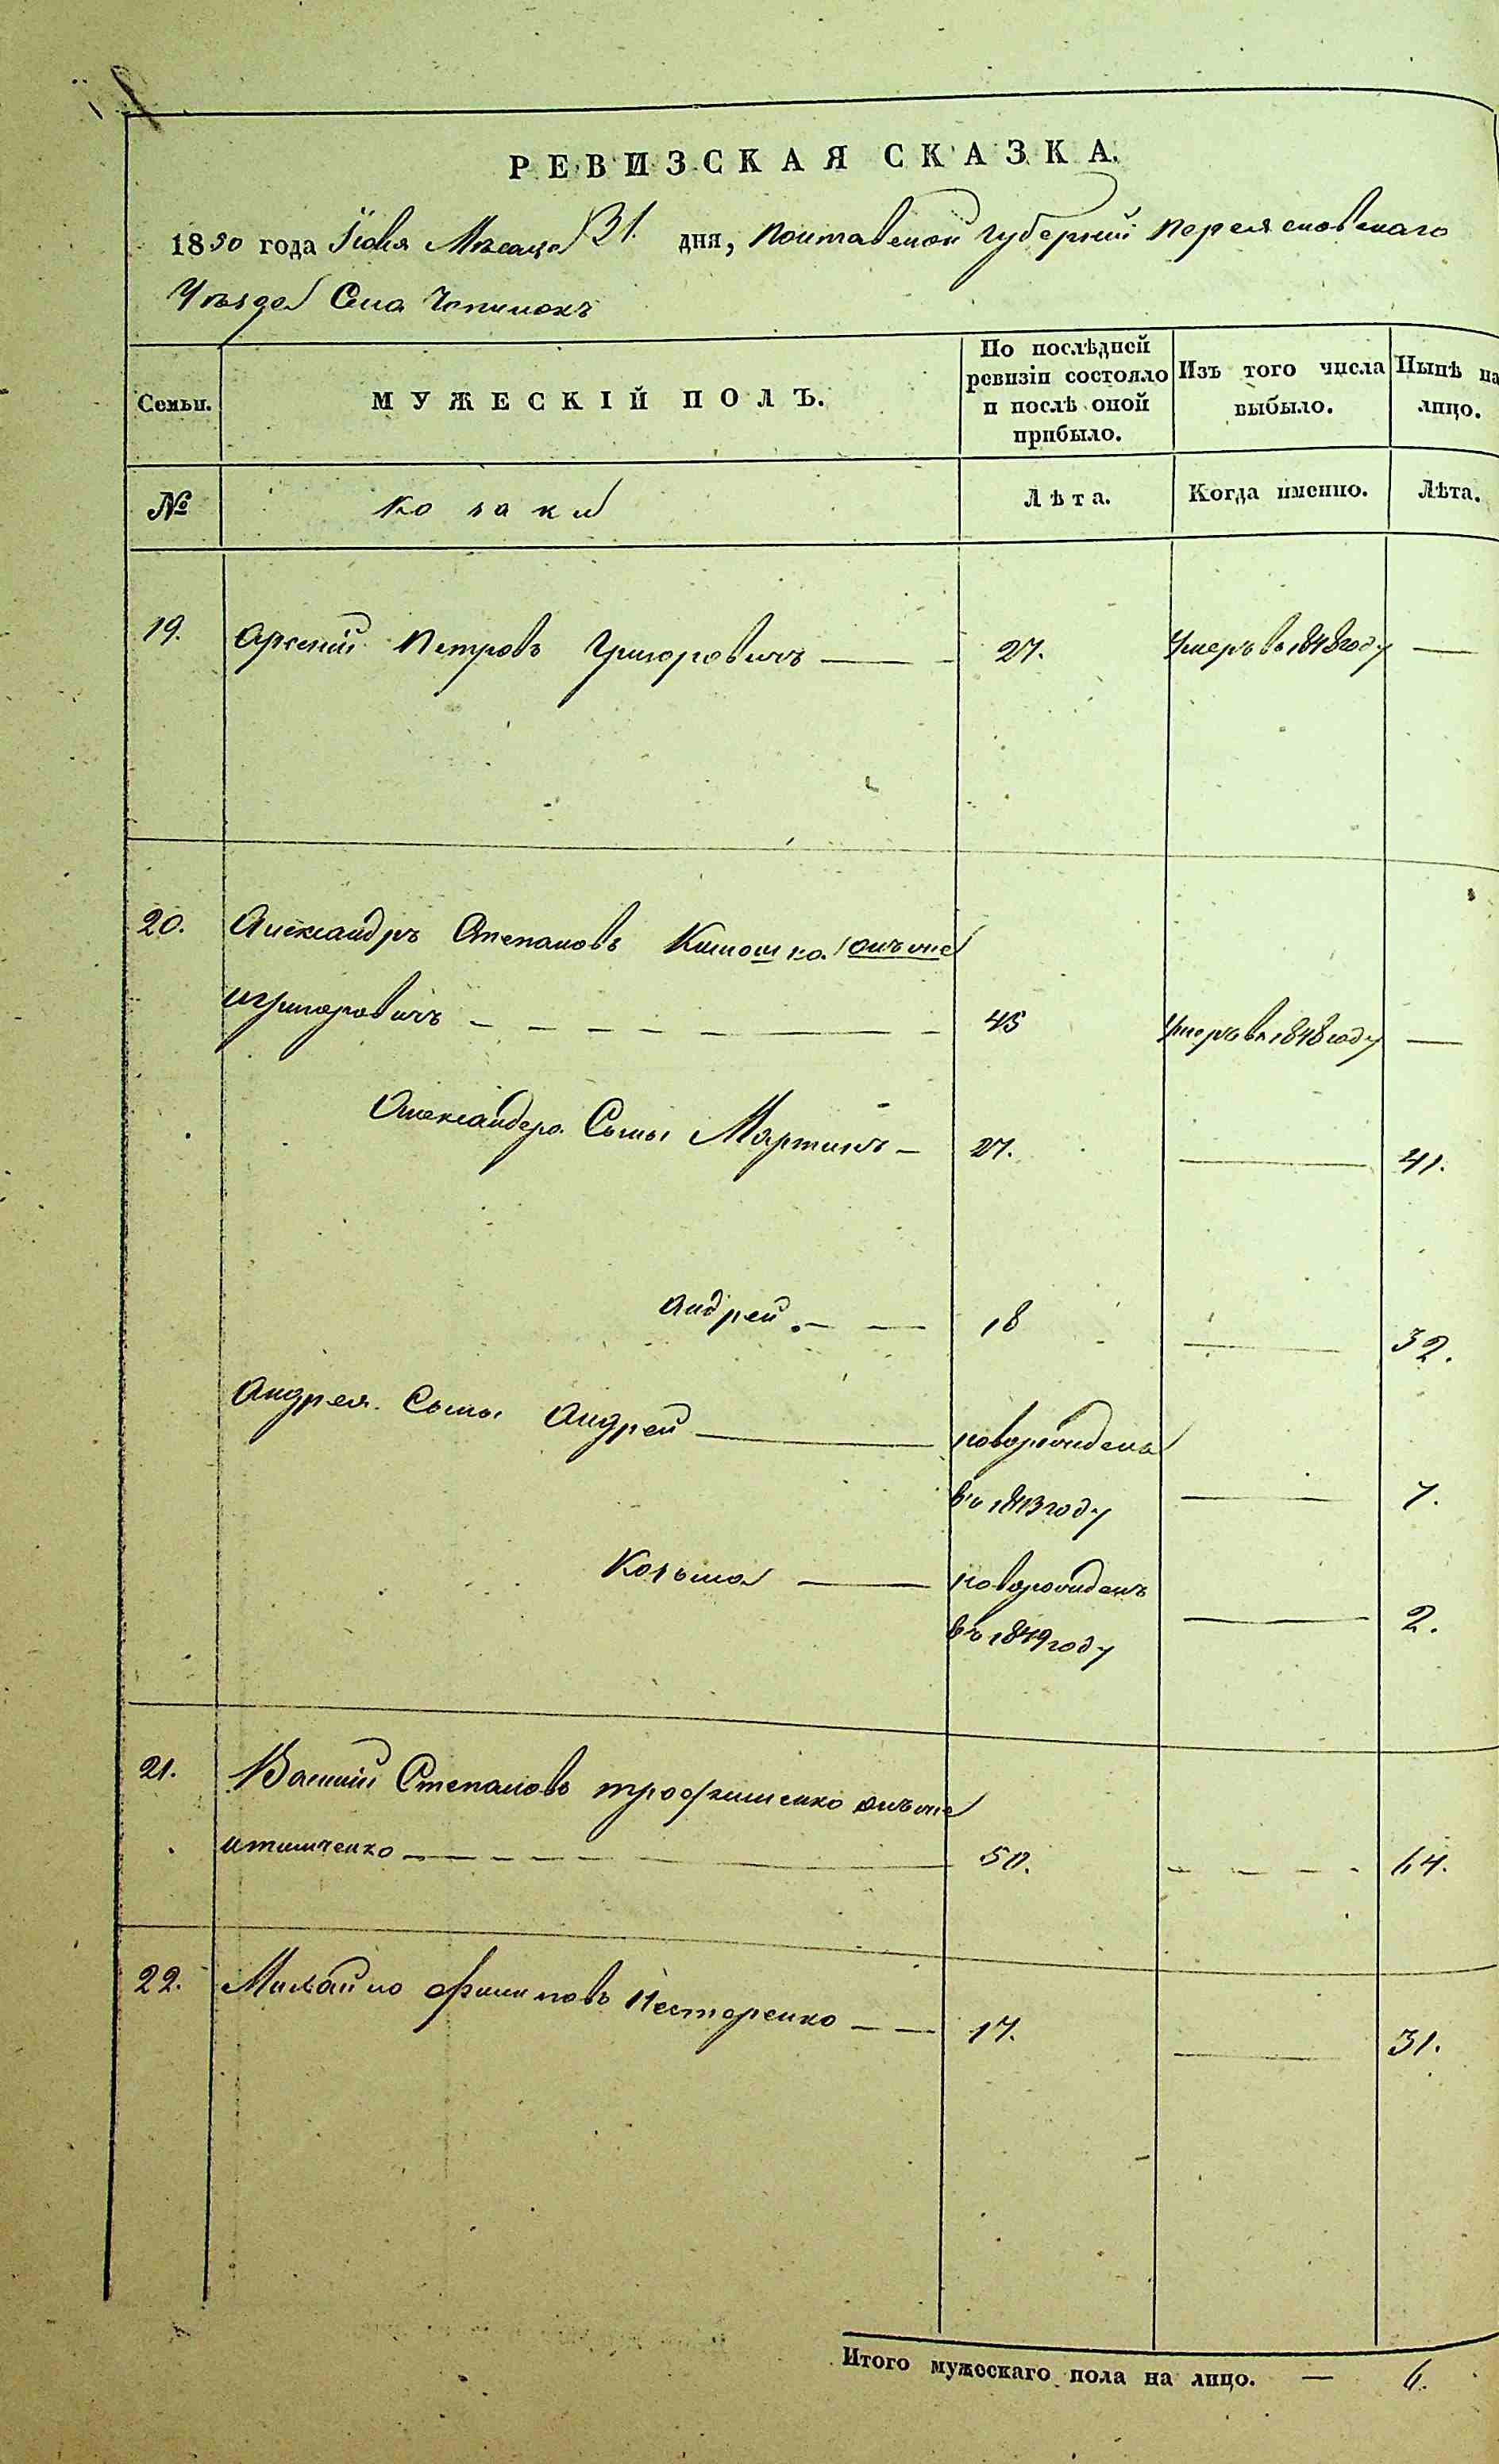 РЕВИЗСКАЯ СКАЗКА.
1850 года Іюля Мѣсяца 31. дня, Полтавской Губерніи Переясловскаго
Уѣзда Села Чопилокъ
Семьи.
МУЖЕСКІЙ ПОЛЪ.
По послѣдней ревизіи состояло и послѣ оной прибыло.
Изъ того числа выбыло.
Нынѣ на лицо.
№
Козаки
Лѣта.
Когда именно.
Лѣта.
19. Арсеній Петровъ Григоровичъ 27. Умеръ въ 1848 году —
20. Александръ Степановъ Кишошка онъ же
и Григоровичъ 45 Умеръ въ 1848 году —
Александра Сыны Мартинъ 27. — 41.
Андрей 18 — 32.
Андрея Сыны Андрей новорожденъ
въ 1843 году — 7.
Козьма новорожденъ
въ 1849 году — 2.
21. Василій Степановъ Трофименко онъ же
и Тимченко 50. — 64.
22. Михайло Филиповъ Нестеренко 17. — 31.
Итого мужескаго пола на лицо. — 6.